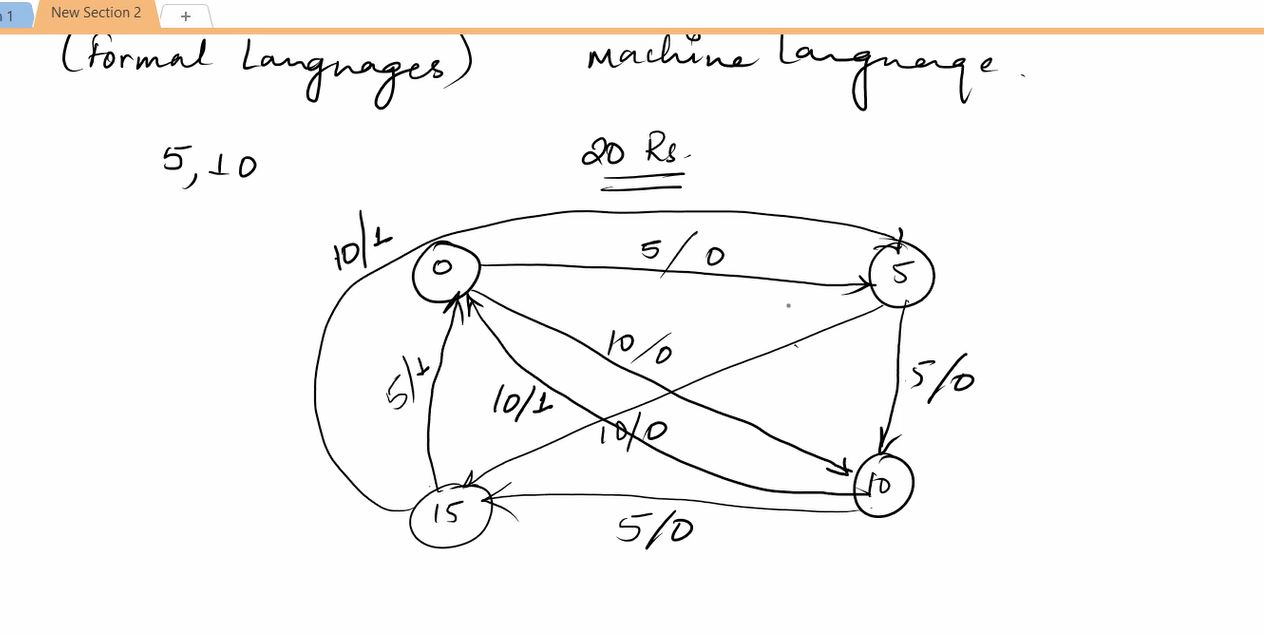 1
New Section 2
+
(formal Languages) Machine Language.
5, 10
20 Rs.
10/1
0
5/0
5
10/0
5/1
10/1
5/0
10/0
15
10
5/0